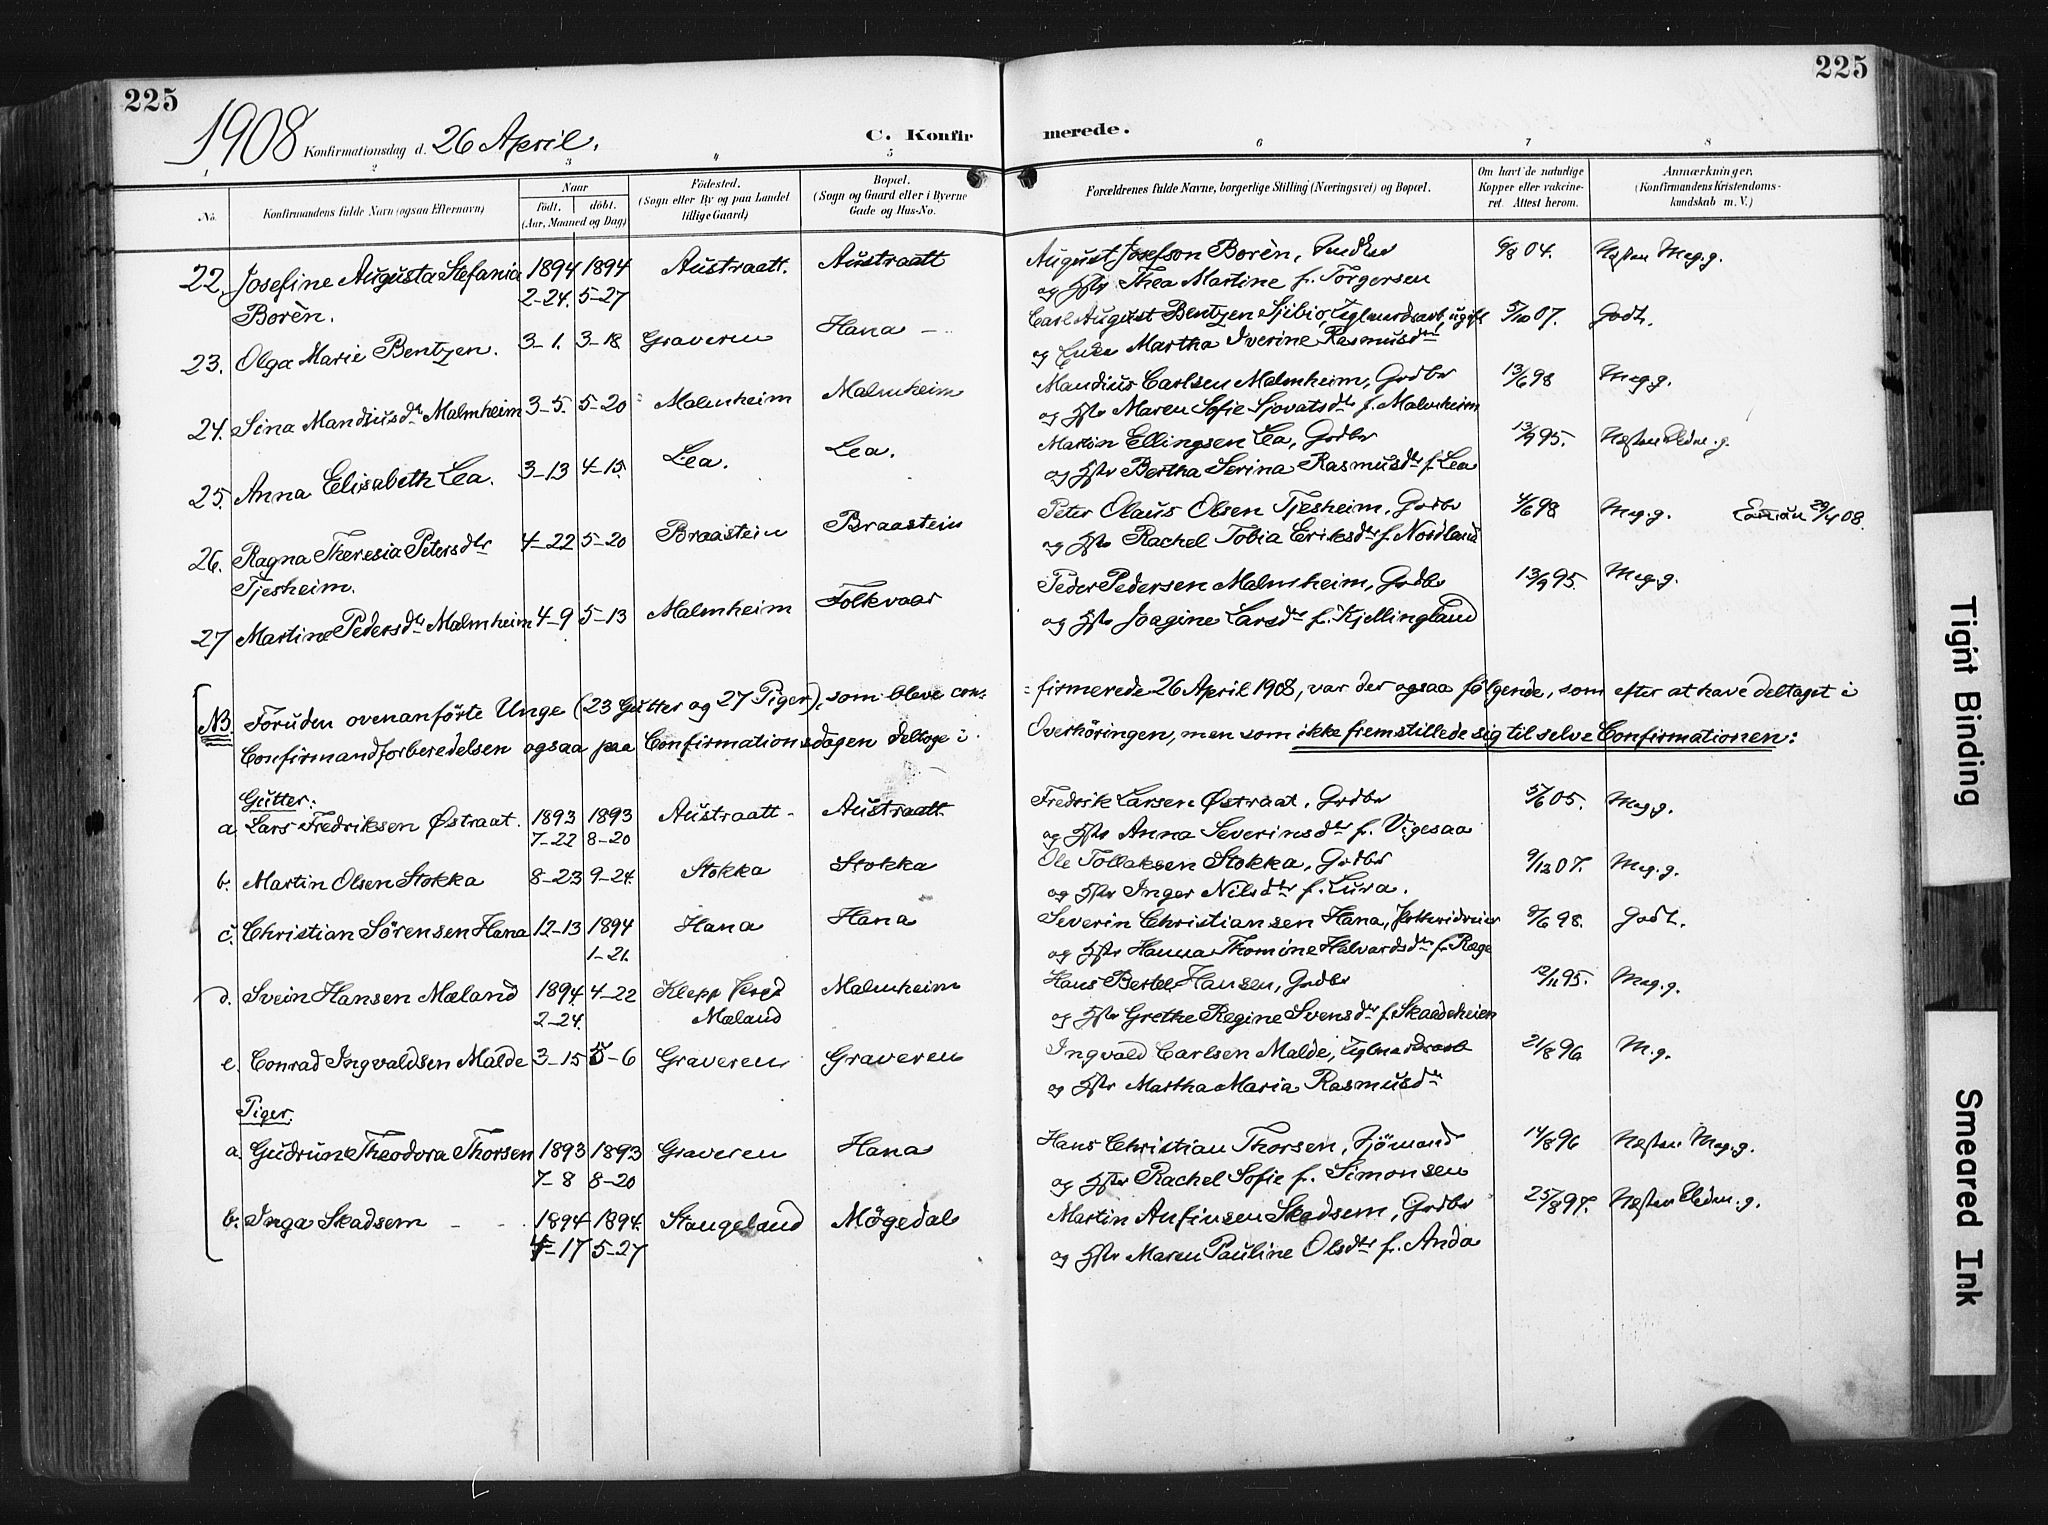 225
225
1908 Konfirmationsdag d. 26 April.
C. Konfirmerede.
1 2 3 4 5 6 7 8
No. Konfirmandens fulde Navn (ogsaa Efternavn) Naar født. døbt. (Aar, Maaned og Dag) Födested. (Sogn eller By og paa Landet tillige Gaard) Bopæl. (Sogn og Gaard eller i Byerne Gade og Hus-No. Forældrenes fulde Navne, borgerlige Stilling (Næringsvei) og Bopæl. Om havt de naturlige Kopper eller vakcineret. Attest herom. Anmærkninger. (Konfirmandens Kristendomskundskab m. V.)
22. Josefine Augusta Stefania 1894 1894 Austraatt. Austraatt August Josefson Borèn, 6/8 04. Næsten Meg. g.
Borèn. 2-24. 5-27 og Hstr Thea Martine f. Torgersen
23. Olga Marie Bentzen. 3-1. 3-18 Graveren Hana - Carl August Bentzen ugift 5/10 07. Godt.
og Martha Iverine Rasmusdtr
24. Sina Mandiusdtr Malmheim 3-5. 5-20 Malmheim Malmheim Mandius Carlsen Malmheim, Grdbr 13/6 98 Meg. g.
og Hstr Maren Sofie Sjovatsdtr f. Malmheim
25. Anna Elisabeth Lea. 3-13 4-15. Lea. Lea. Martin Ellingsen Lea, Grdbr 13/9 95. Næsten g.
og Hstr Bertha Serina Rasmusdtr f. Lea
26. Ragna Theresia Petersdtr 4-22 5-20 Braastein Braastein Peter Olaus Olsen Tjesheim, Grdbr 4/6 98 Meg. g. 29/4 08.
Tjesheim. og Hstr Rachel Tobia Eriksdtr f. Nordland
27 Martine Pedersdtr Malmheim 4-9 5-13 Malmheim Folkvaar Peder Pedersen Malmheim, Grdbr 13/9 95. Meg. g.
og Hstr Joagine Larsdtr f. Kjellingland
NB. Foruden ovenanførte Unge (23 Gutter og 27 Piger), som bleve con=
=firmerede 26 April 1908, var der ogsaa følgende, som efter at have deltaget i
Confirmandforberedelsen ogsaa paa Confirmationsdagen deltoge i
Overhöringen, men som ikke fremstillede sig til selve Confirmationen:
Gutter:
a Lars Fredriksen Østraat. 1893 1893 Austraatt - Austraatt Fredrik Larsen Østraat, Grdbr 5/6 05. Meg. g.
7-22 8-20 og Hstr Anna Severinsdtr f. Vigesaa
b. Martin Olsen Stokka 8-23 9-24. Stokka Stokka Ole Tollaksen Stokka, Grdbr 9/12 07. Meg. g.
og Hstr Inger Nilsdtr f. Lura.
c. Christian Sørensen Hana 12-13 1894 Hana Hana Severin Christiansen Hana, 9/6 98. Godt.
1-21. og Hstr Hanna Thomine Halvardsdtr f. Ræge
d. Svein Hansen Mæland 1894. 4-22 Klepp Malmheim Hans Bertel Hansen, Grdbr 12/11 95. Meg. g.
2-24. Mæland og Hstr Grethe Regine Svensdtr f. Skaadeheien
e. Conrad Ingvaldsen Malde 3-15 5-6 Graveren Graveren Ingvald Carlsen Malde, 21/8 96 M. g.
og Hstr Martha Maria Rasmusdtr
Piger.
a. Gudrun Theodora Thorsen 1893 1893 Graveren Hana Hans Christian Thorsen, Sjömand 14/8 96 Næsten Meg. g.
7-8 8-20 og Hstr Rachel Sofie f. Simonsen
b. Inga Skadsem - - 1894 1894. Stangeland Møgedal Martin Anfinsen Skadsem, Grdbr 25/8 97. Næsten g.
4-17 5-27 og Hstr Maren Pauline Olsdtr f. Anda
Tight Binding
Smeared Ink